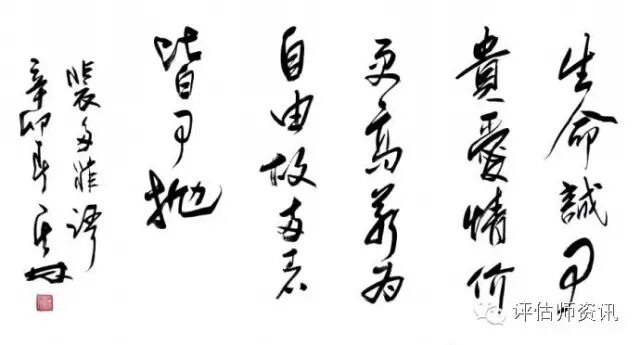 生命誠可
貴愛情价
更高若为
自由故两者
皆可抛
裴多菲
辛卯年
评估师资讯